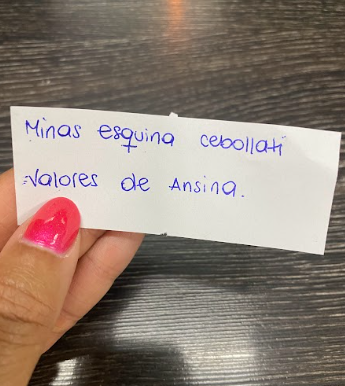 Minas esquina cebollati
Valores de Ansina.